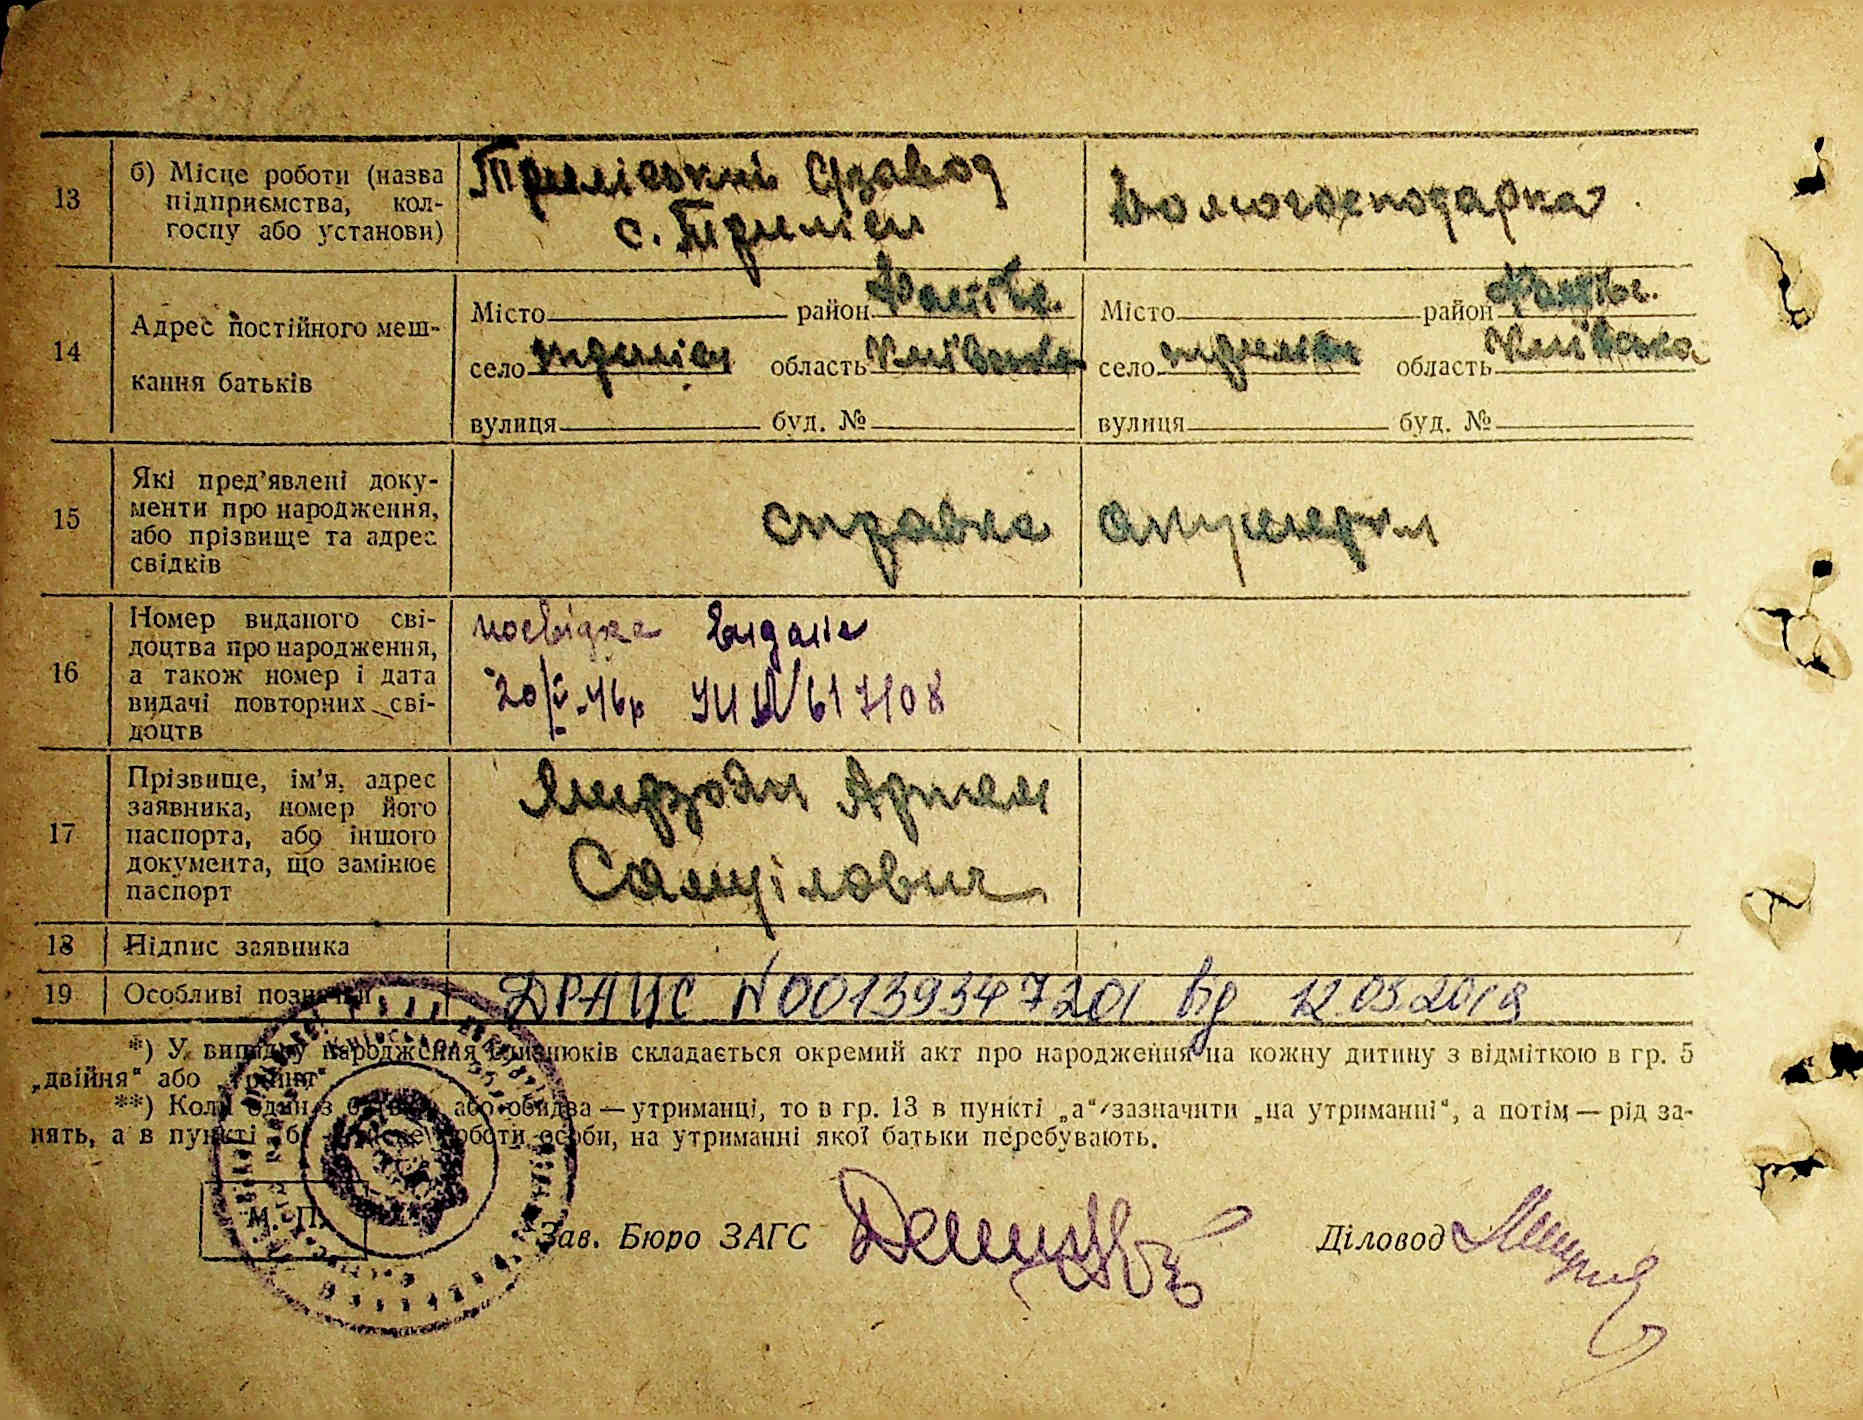 13
б) Місце роботи (назва
підприємства, кол-
госпу або установи)
с. Триліси
Домогосподарка
14
Адрес постійного меш-
кання батьків
Місто район Фастівс.
село Триліси область Київська
вулиця буд. №
Місто район Фастівс.
село Триліси область Київська
вулиця буд. №
15
Які пред'явлені доку-
менти про народження,
або прізвище та адрес
свідків
справка
16
Номер виданого сві-
доцтва про народження,
а також номер і дата
видачі повторних сві-
доцтв
посвідка видана
17
Прізвище, ім'я, адрес
заявника, номер його
паспорта, або іншого
документа, що замінює
паспорт
Артем
Самуїлович
18
Підпис заявника
19
Особливі позначки
ДРАЦС N 00139347201 від 12 03 2019
*) У випадку народження близнюків складається окремий акт про народження на кожну дитину з відміткою в гр. 5
„двійня" або „тройня"
**) Коли один з батьків або обидва — утриманці, то в гр. 13 в пункті „а" зазначити „на утриманні", а потім — рід за-
нять, а в пункті „б" місце роботи особи, на утриманні якої батьки перебувають.
М. П.
Зав. Бюро ЗАГС
Діловод